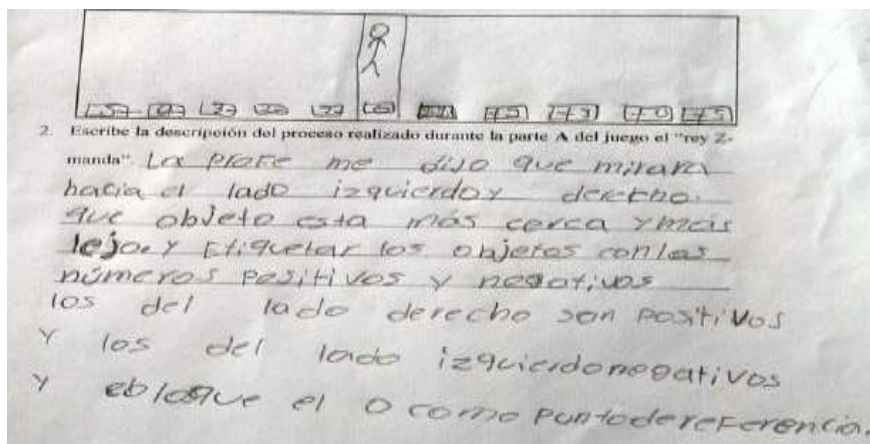 2. Escribe la descripción del proceso realizado durante la parte A del juego el "rey Z-
manda". La profe me dijo que mirara
hacia el lado izquierdo y derecho.
que objeto esta más cerca y más
lejos. y Etiquetar los objetos con los
números positivos y negativos
los del lado derecho son positivos
Y los del lado izquierdo negativos
Y el 0 como punto de referencia.